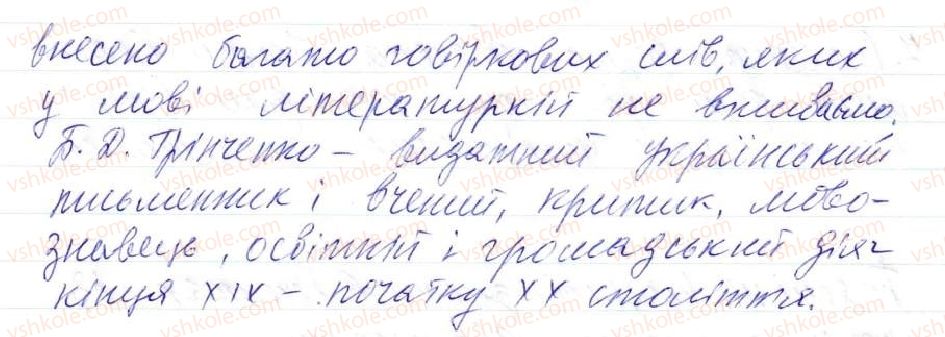 внесено багато говіркових слів, яких
у мові літературній не вживаємо.
Б. Д. Грінченко – видатний український
письменник і вчений, критик, мово-
знавець, освітній і громадський діяч
кінця XIX – початку XX століття.